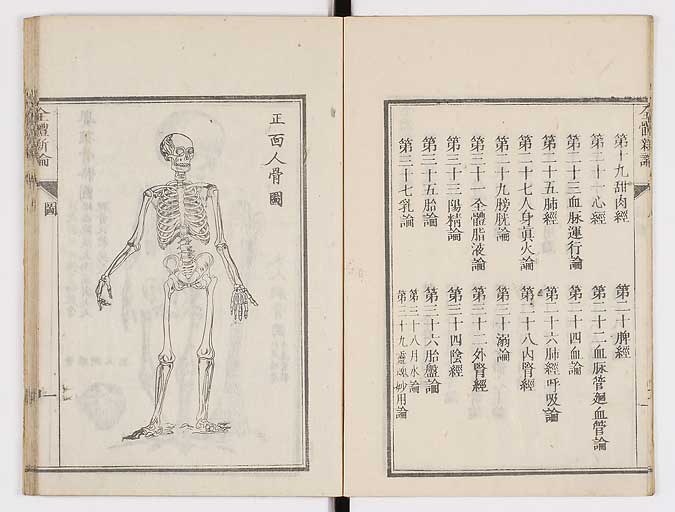 全體新論
第十九甜肉經
第二十脾經
第二十一心經
第二十二血脉管迴血管論
第二十三血脉運行論
第二十四血論
第二十五肺經
第二十六肺經呼吸論
第二十七人身眞火論
第二十八內腎經
第二十九膀胱論
第三十溺論
第三十一全體脂液論
第三十二外腎經
第三十三陽精論
第三十四陰經
第三十五胎論
第三十六胎盤論
第三十七乳論
第三十八月水論
第三十九靈魂妙用論
正面人骨圖
全體新論
圖
一